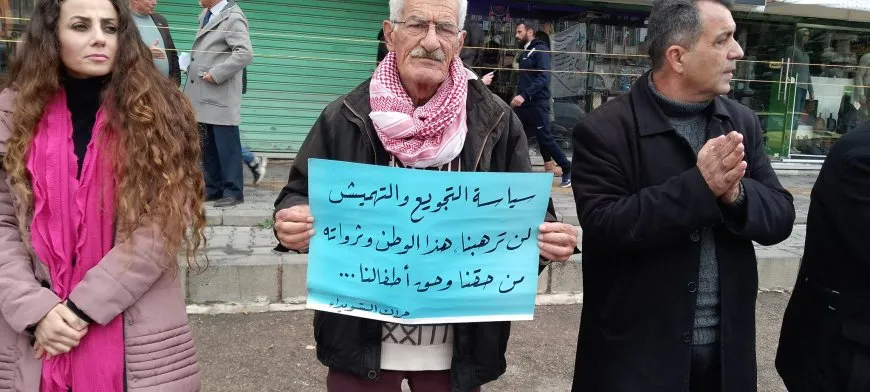 سياسة التجويع والتهميش
لن ترهبنا، هذا الوطن وثرواته
من حقنا وحق أطفالنا ...
حراك السويداء